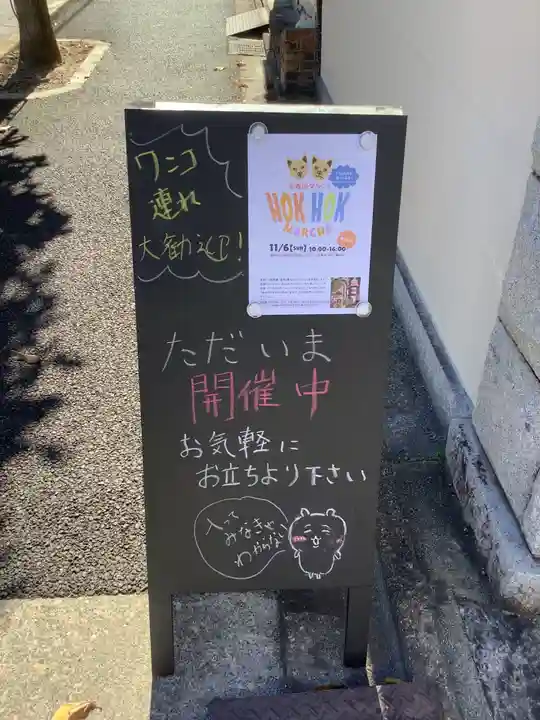 ワンコ
連れ
大歓迎!
HOK HOK
MARCHE
11/6[SUN] 10:00-16:00
ただいま
開催中
お気軽に
お立ちより下さい
入って
みなきゃ
わからない